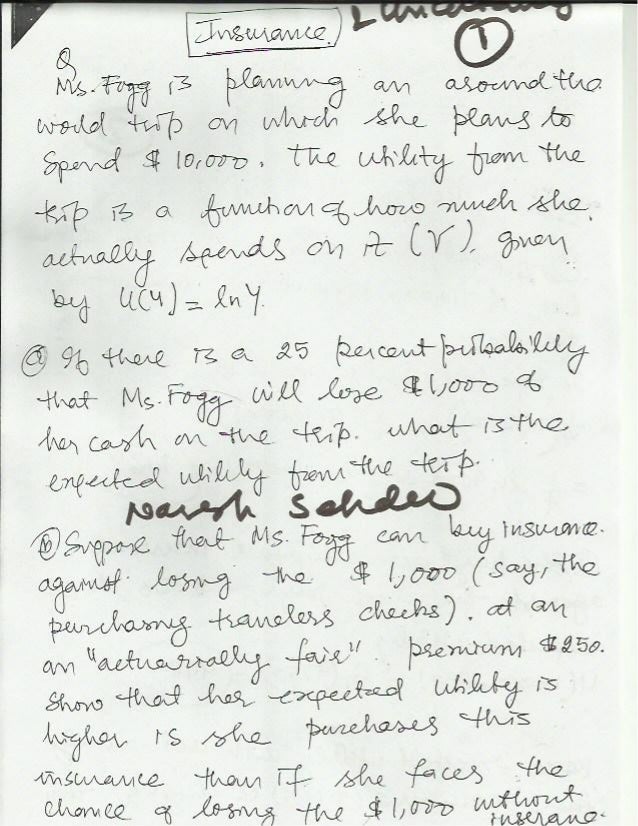 Insurance
&
1
Q
Ms. Fogg is planning an around the
world trip on which she plans to
Spend $ 10,000. The utility from the
trip is a function of how much she
actually spends on it (Y), given
by U(Y) = ln Y.
(a) If there is a 25 percent probability
that Ms. Fogg will lose $1,000 of
her cash on the trip. what is the
expected utility from the trip.
Naresh Sehdev
(b) Suppose that Ms. Fogg can buy insurance.
against losing the $ 1,000 (say, the
purchasing travelers checks). at an
an "actuarially fair" premium $250.
Show that her expected utility is
higher is she purchases this
insurance than if she faces the
chance of losing the $1,000 without
insurance.